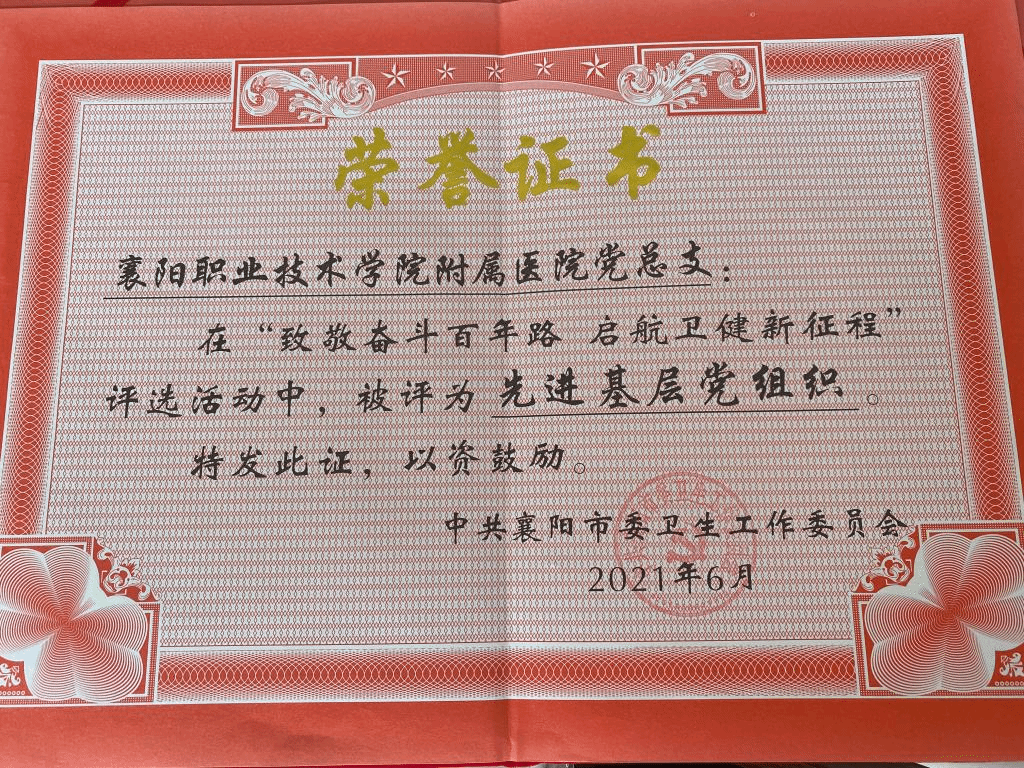 荣誉证书
襄阳职业技术学院附属医院党总支：
在“致敬奋斗百年路 启航卫健新征程”
评选活动中，被评为 先进基层党组织。
特发此证，以资鼓励。
中共襄阳市委卫生工作委员会
2021年6月